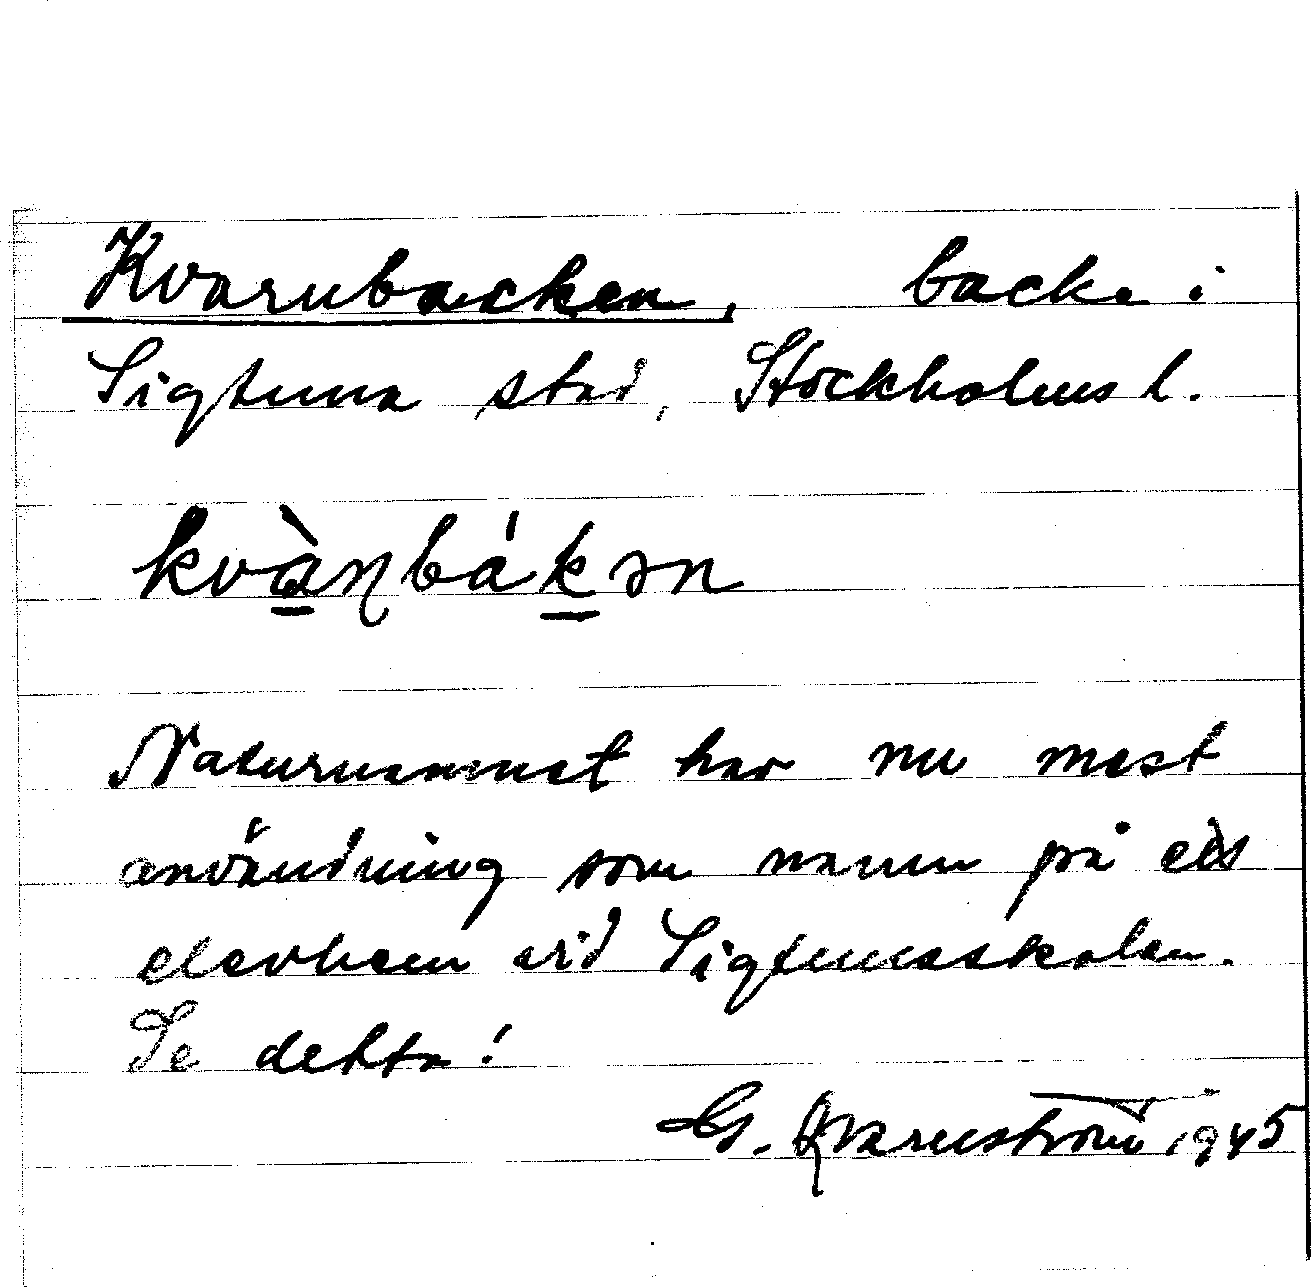 Kvarnbacken, backe i
Sigtuna stad, Stockholms l.
kvàɳbákən
Naturnamnet har nu mest
användning som namn på ett
elevhem vid Sigtunaskolan.
Se detta!
G. Qvarnström 1945